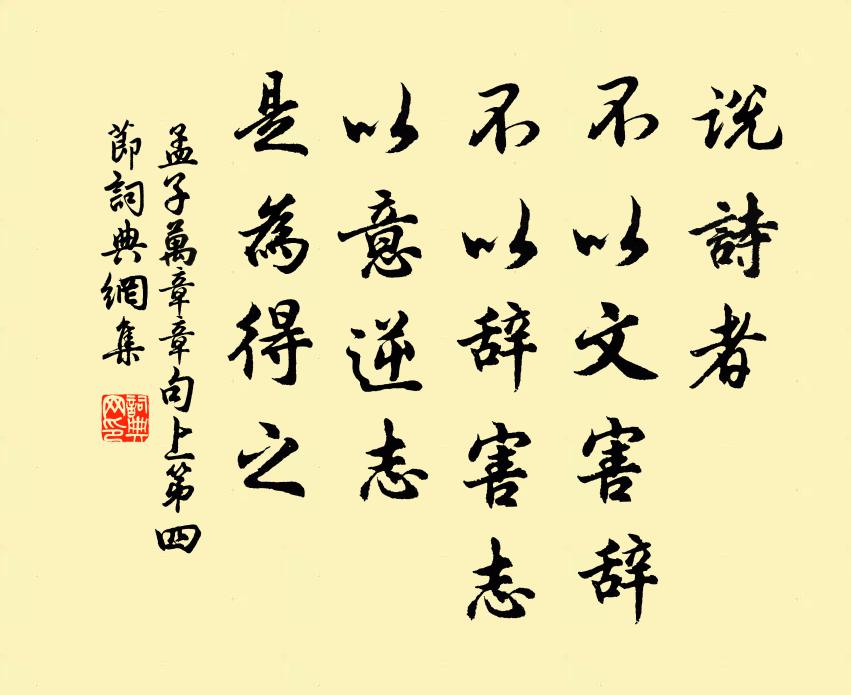 说詩者
不以文害辞
不以辞害志
以意逆志
是為得之
孟子萬章章句上第四
節詞典網集
詞典
网印